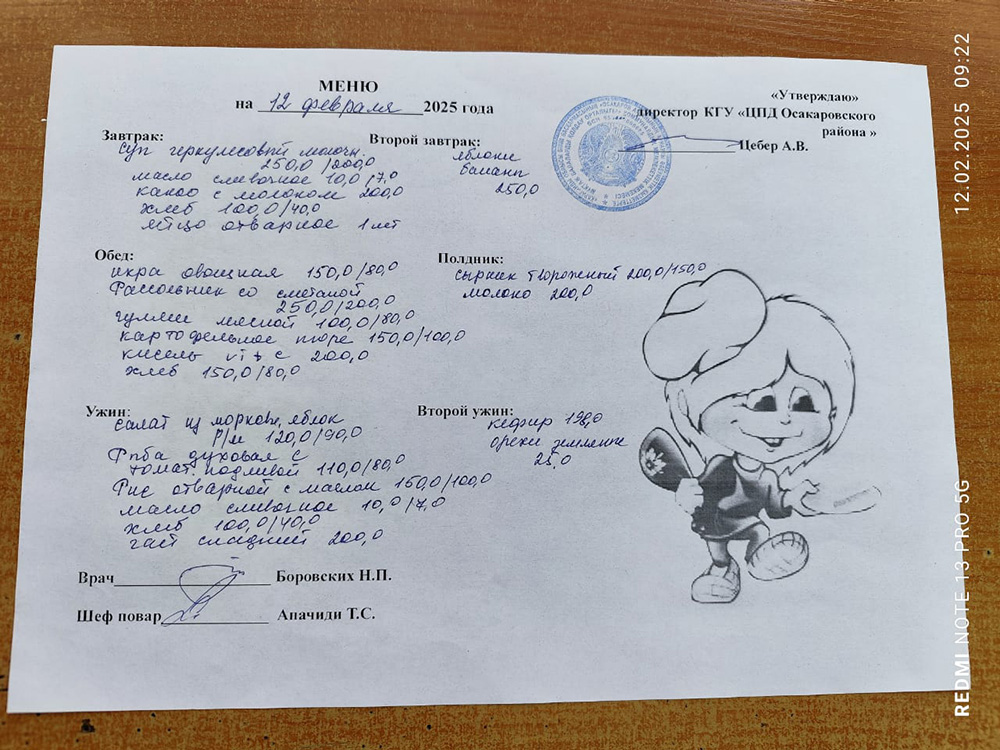 МЕНЮ
на 12 февраля 2025 года
«Утверждаю»
директор КГУ «ЦПД Осакаровского
района »
Цебер А.В.
Завтрак:
Суп геркулесовый молочн.
250,0/200,0
масло сливочное 10,0/7,0
какао с молоком 200,0
хлеб 100,0/40,0
яйцо отварное 1 шт
Второй завтрак:
яблоки
бананы
250,0
Обед:
икра овощная 150,0/80,0
Рассольник со сметаной
250,0/200,0
гуляш мясной 100,0/80,0
картофельное пюре 150,0/100,0
кисель vit c 200,0
хлеб 150,0/80,0
Полдник:
сырник творожный 200,0/150,0
молоко 200,0
Ужин:
салат из моркови, яблок
Р/м 120,0/90,0
Рыба духовая с
томат. подливой 110,0/80,0
Рис отварной с маслом 150,0/100,0
масло сливочное 10,0/7,0
хлеб 100,0/40,0
чай сладкий 200,0
Второй ужин:
кефир 198,0
орехи земляные
25,0
Врач Боровских Н.П.
Шеф повар Апачиди Т.С.
12.02.2025 09:22
REDMI NOTE 13 PRO 5G